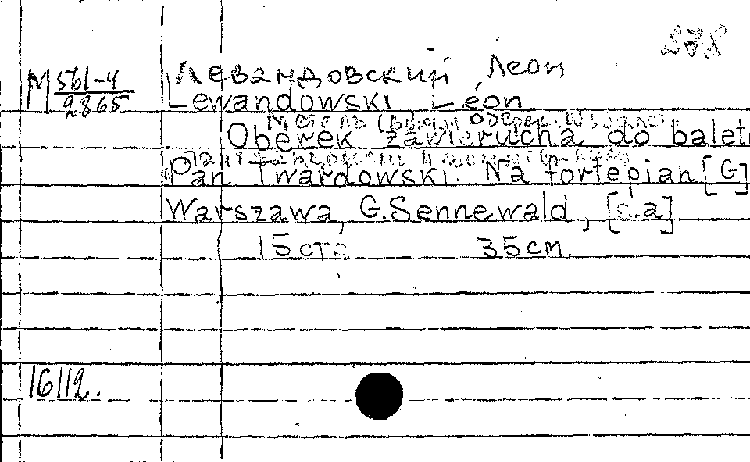 М 561-4
2865
Левандовский Леон
Lewandowski Léon
Oberek zawierucha do baletu
Pan Twardowski. Na fortepian [G]
Warszawa, G. Sennewald, [s.a]
15 стр 35 см
16112.